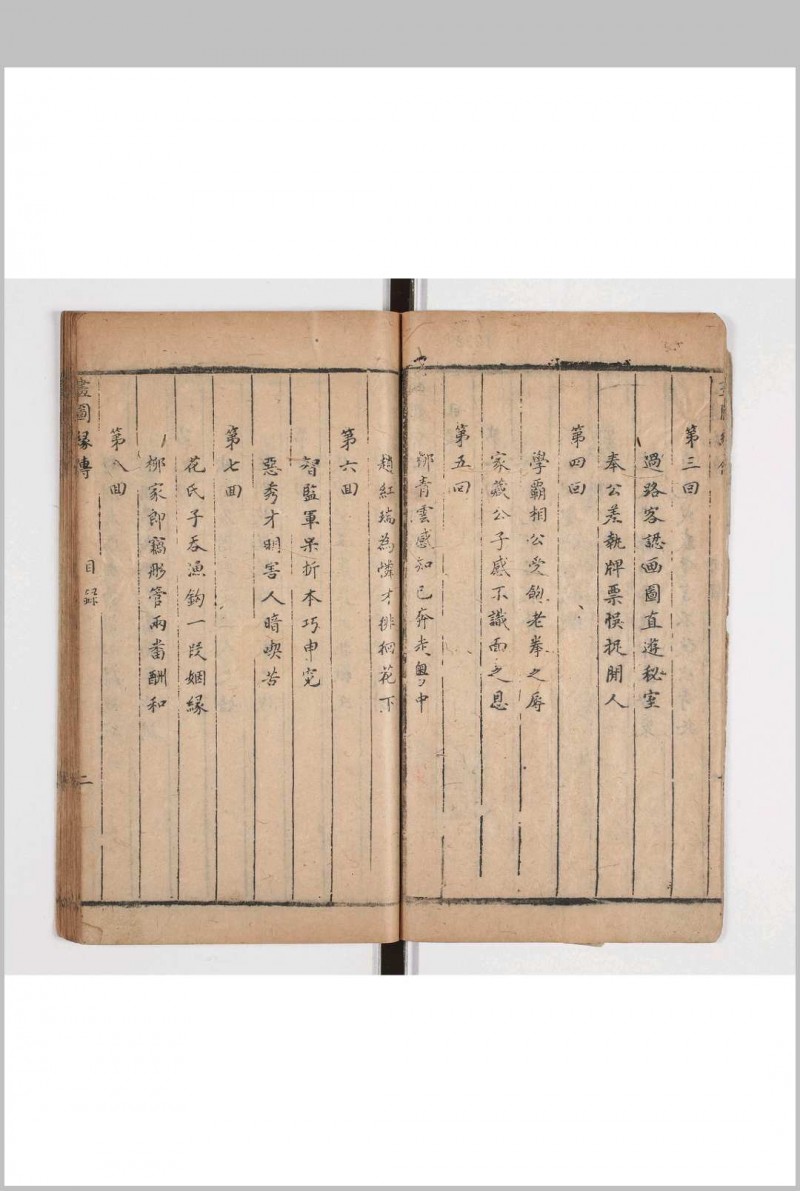 第三回
過路客認画圖直遊秘室
奉公差執牌票悞捉閒人
第四回
學霸相公受飽老拳之辱
家藏公子感不識面之恩
第五回
柳青雲感知已奔走
趙紅瑞為憐才徘徊花下
第六回
智監軍呆折本巧申寃
惡秀才明害人暗喫苦
第七回
花氏子吞漁鈎一段姻緣
柳家郎竊彤管兩當酬和
第八回
畫圖緣傳
目錄
二